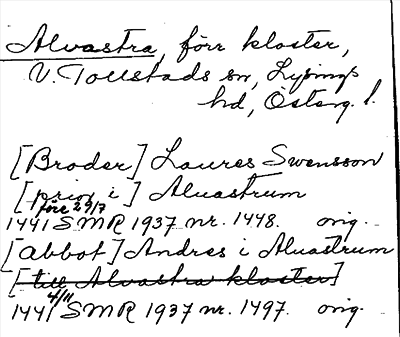 Alvastra, förr kloster,
V. Tollstads sn, Lysings
hd, Österg. l.
[Broder] Laures Swensson
[prior i] Aluastrum
före 29/7
1441 SMR 1937 nr. 1448. orig.
[abbot] Andres i Aluastrum
[till Alvastra kloster]
4/11
1441 SMR 1937 nr. 1497. orig.